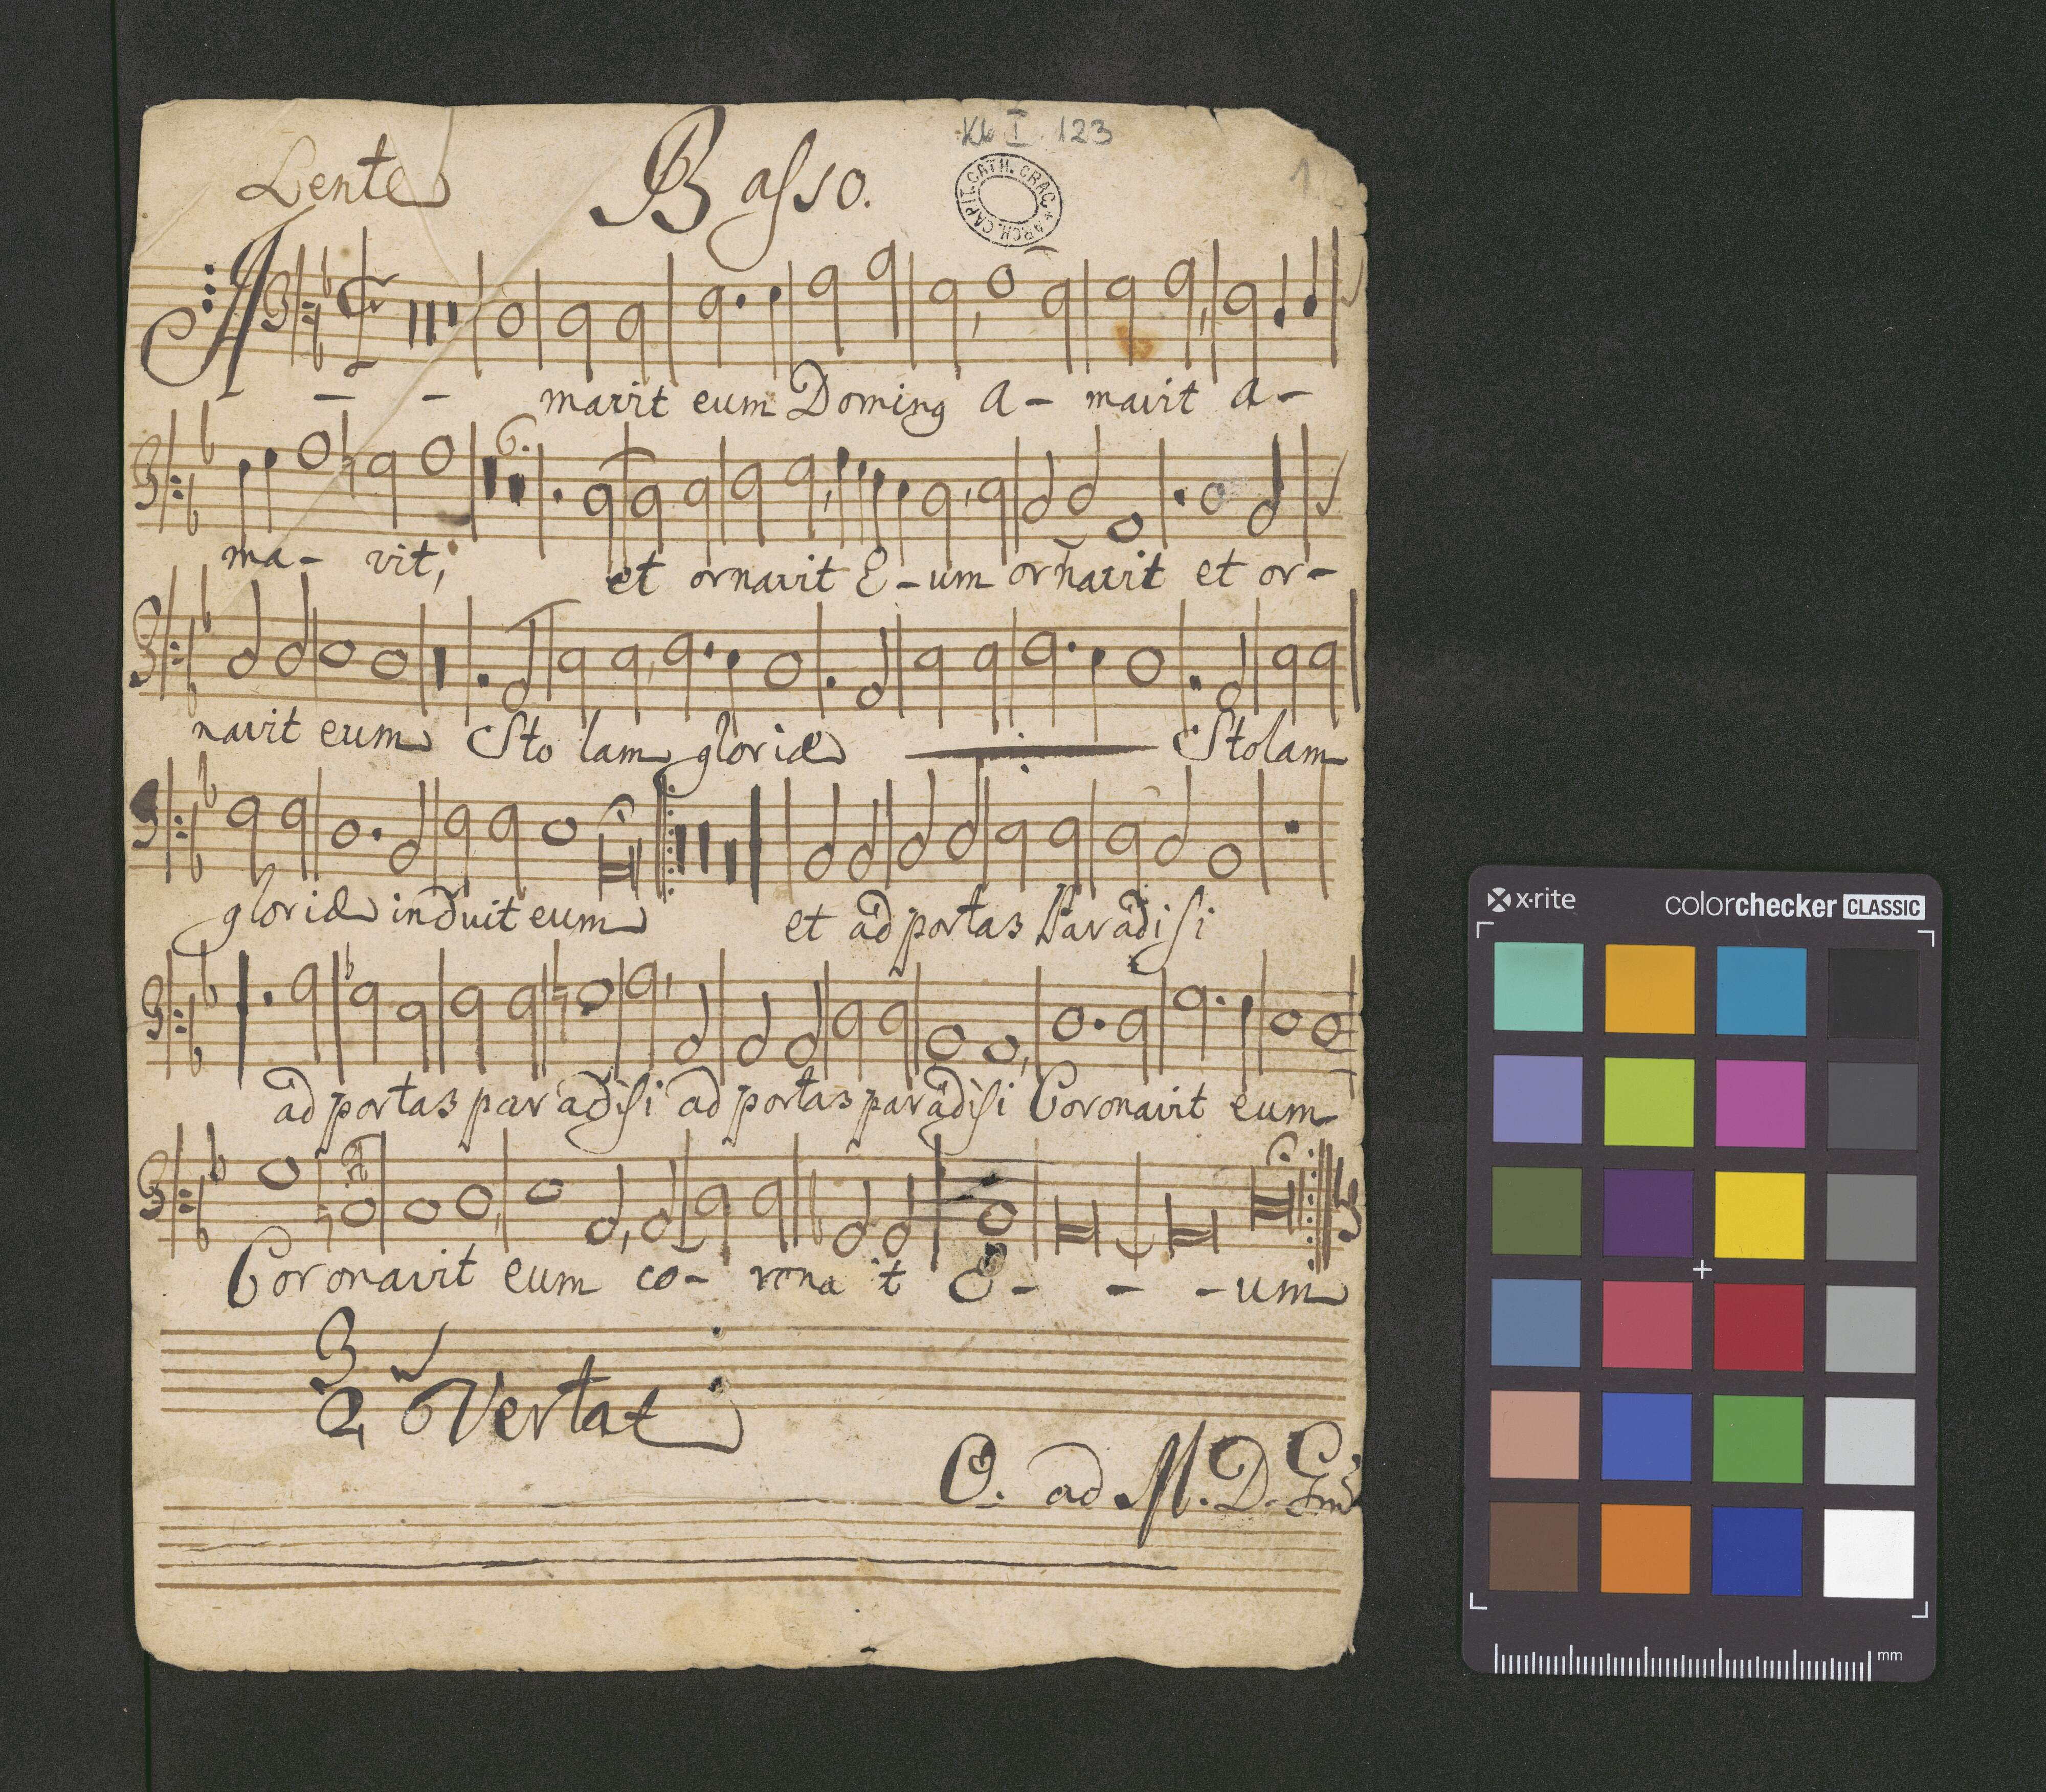 Kk I. 123
1
Lente
Basso.
ARCH. CAPIT. CATH. CRAC.
A - - mavit eum Doming A - mavit a -
6.
ma - vit, et ornavit E - um ornavit et or -
navit eum Sto lam gloriæ Stolam
gloriæ induit eum et ad portas Paradisi
ad portas paradisi ad portas paradisi Coronavit eum
Coronavit eum co - rona t E - - - um
3
2 Vertat
O. ad M. D. G.
x·rite colorchecker CLASSIC
mm